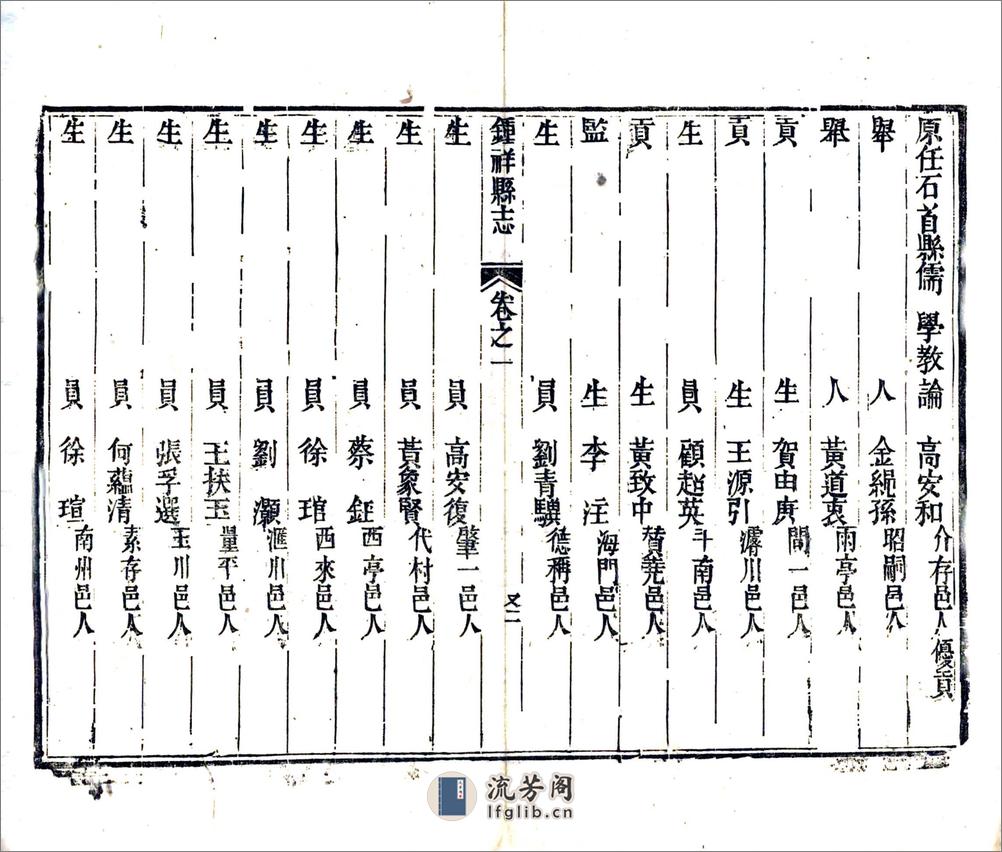 原任石首縣儒學教諭 高安和 介存邑人優貢
舉人 金繩孫 昭嗣邑人
舉人 黃道衷 雨亭邑人
貢生 賀由庚 間一邑人
貢生 王源引 濬川邑人
生員 顧超英 斗南邑人
貢生 黃致中 贊堯邑人
監生 李汪 海門邑人
生員 劉青驥 德稱邑人
鍾祥縣志 卷之一
生員 高安復 肇一邑人
生員 黃象賢 代村邑人
生員 蔡鉦 西亭邑人
生員 徐琯 西來邑人
生員 劉灝 滙川邑人
生員 王扶玉 量平邑人
生員 張孚選 玉川邑人
生員 何蘊清 素存邑人
生員 徐瑄 南州邑人
流芳阁
lfglib.cn